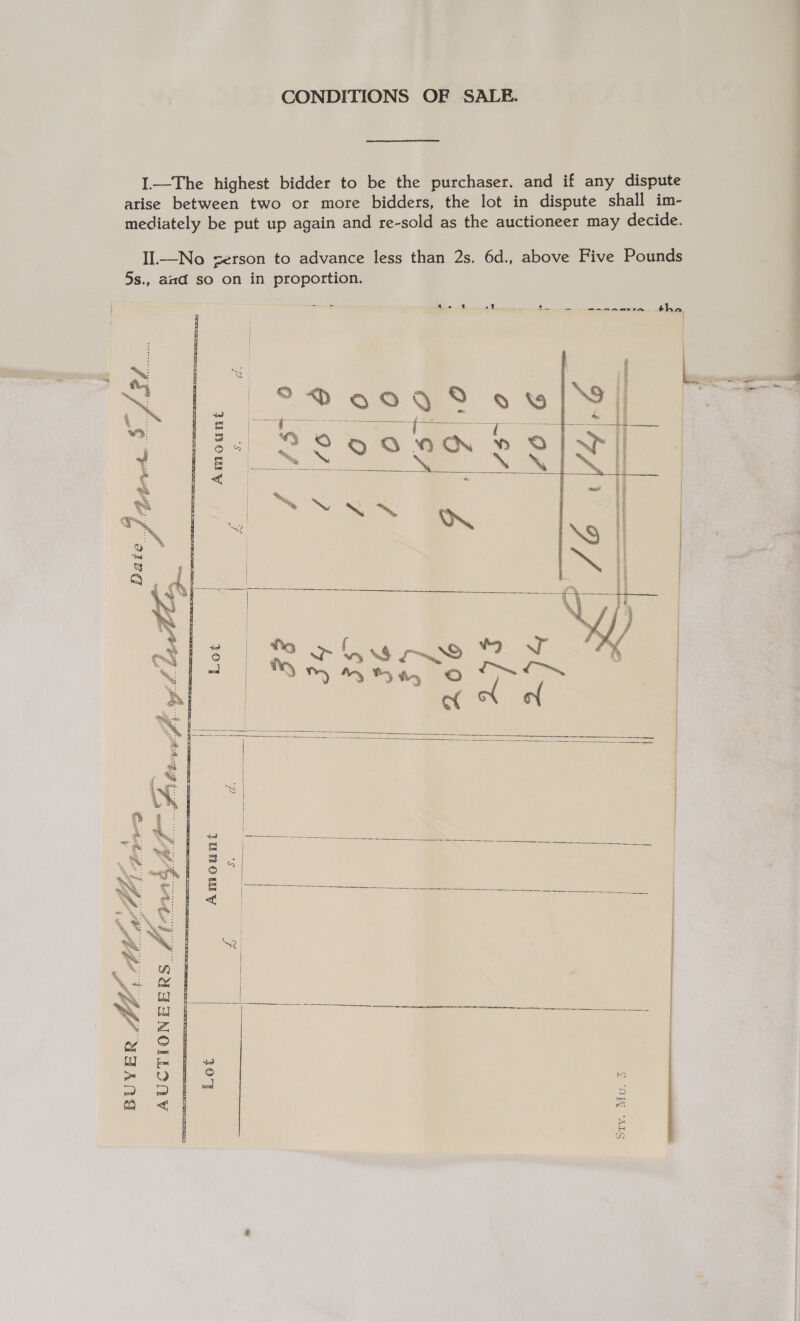 CONDITIONS OF SALE.
I.—The highest bidder to be the purchaser. and if any dispute
arise between two or more bidders, the lot in dispute shall im-
mediately be put up again and re-sold as the auctioneer may decide.
II.—No person to advance less than 2s. 6d., above Five Pounds
5s., and so on in proportion.
the
BUYER Date June 5/31
AUCTIONEERS Knight Frank & Rutley
Lot Amount Lot Amount
£ s. d. £ s. d.
33 1 15 0
34 1 10 0
35 1 0 0
36 1 0 0
37 15 0
206 9 9 0
273 15 0
274 10 6
£16.14.6
Sty. Mu. 3